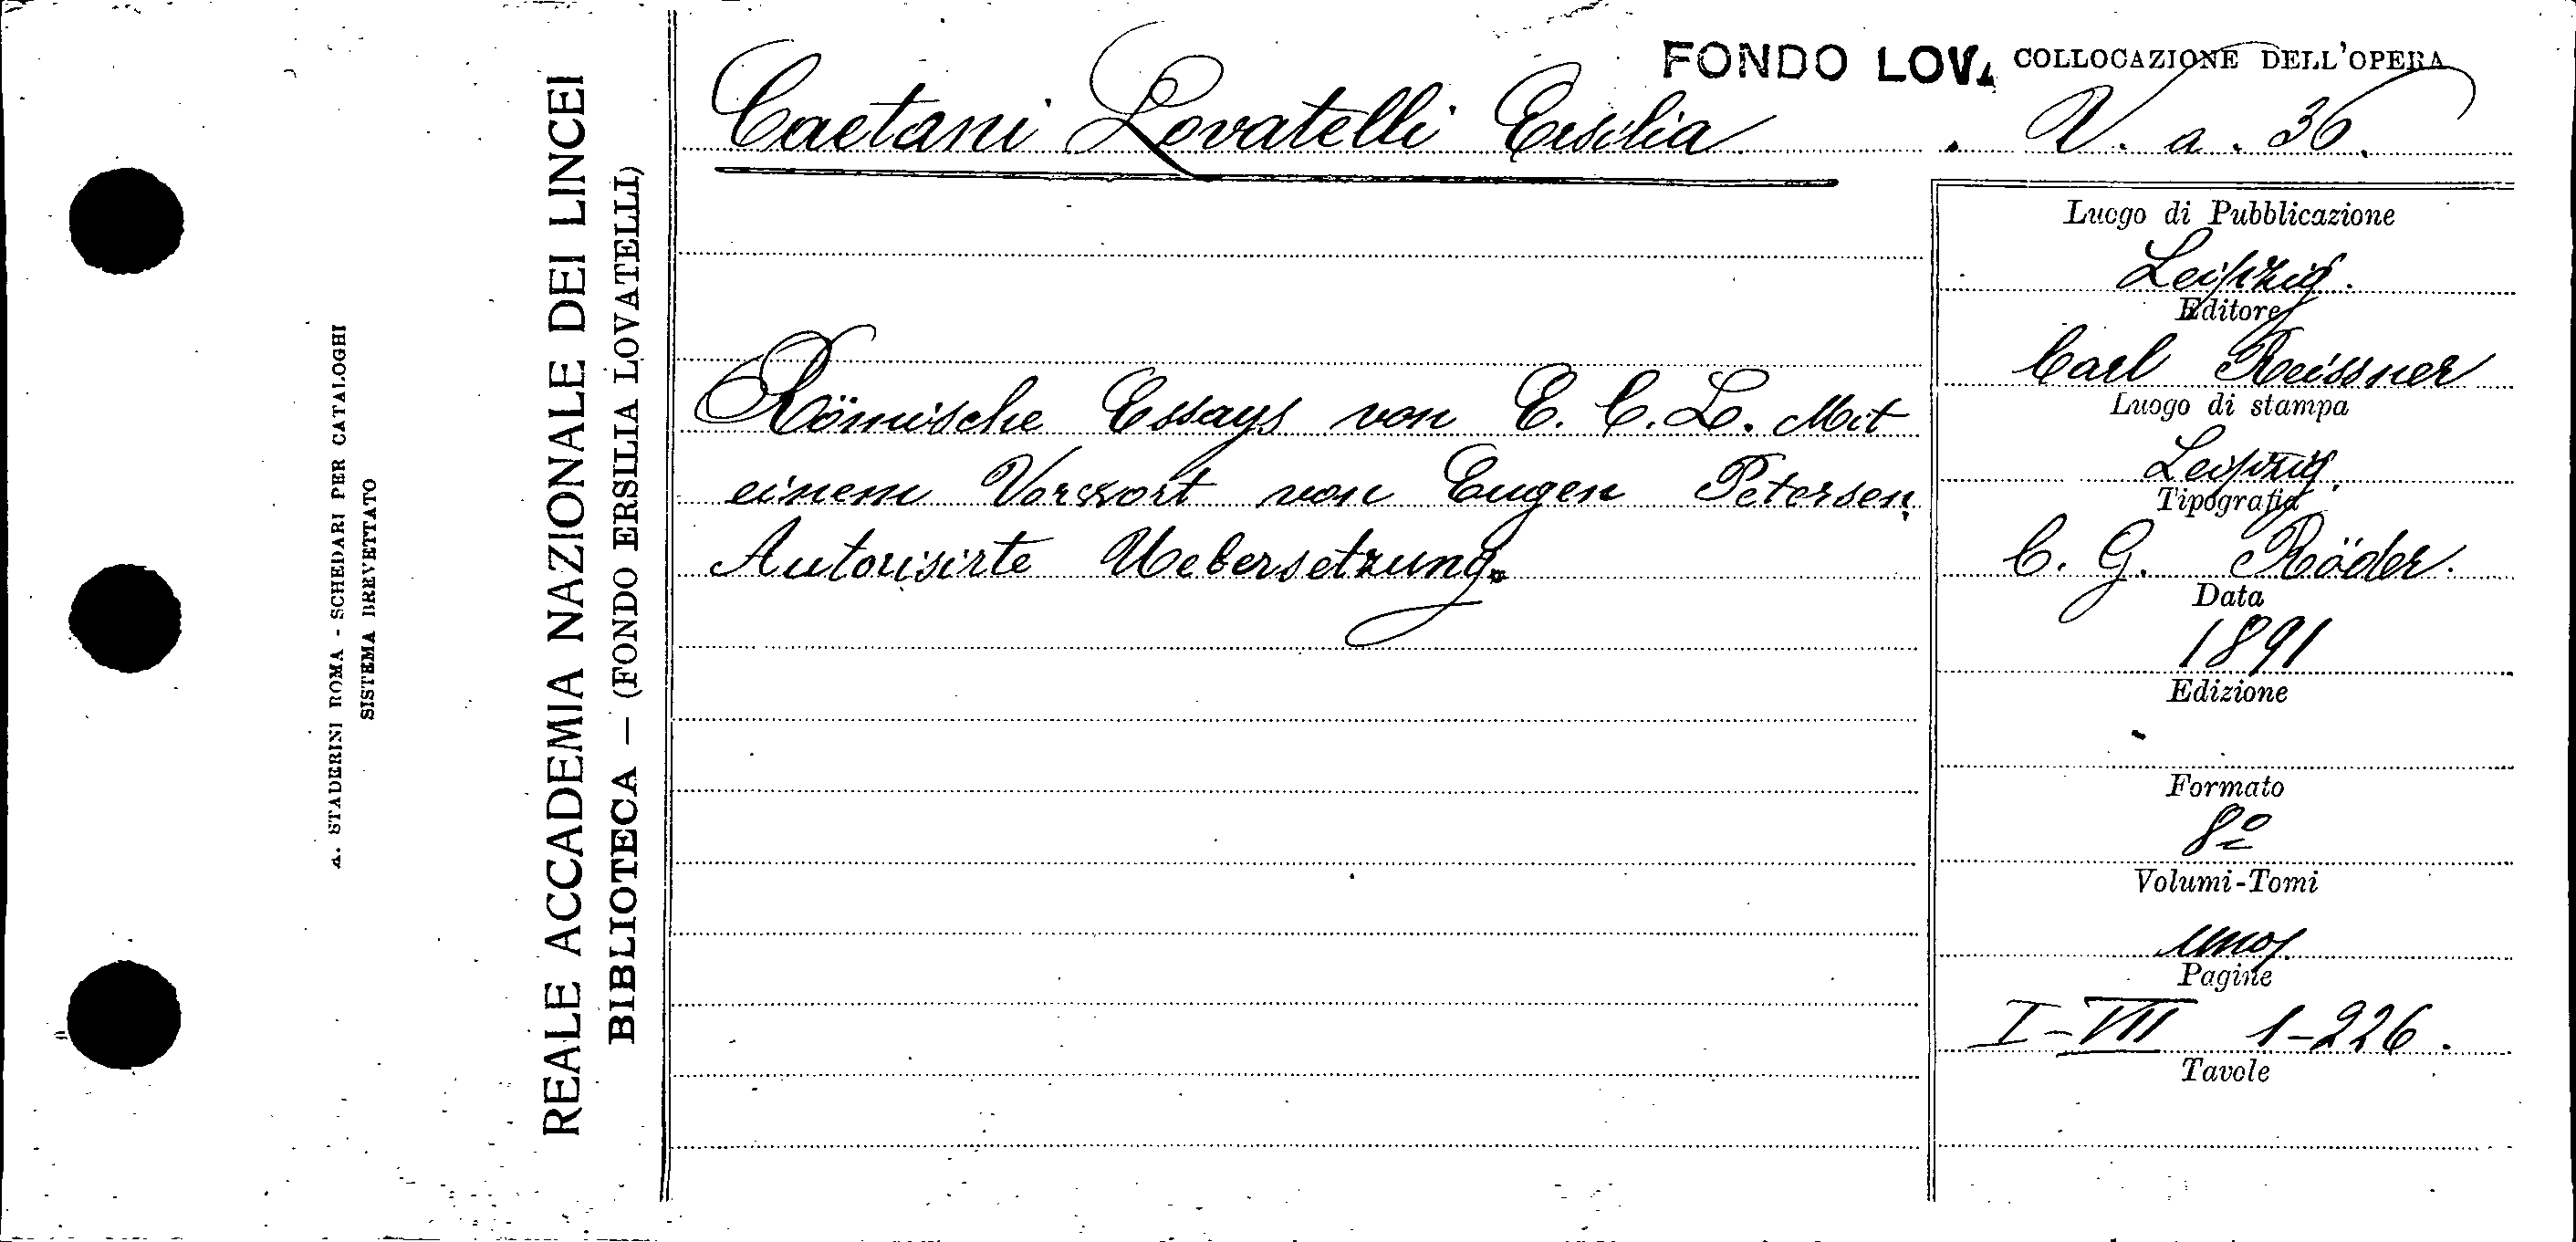 A. STADERINI ROMA - SCHEDARI PER CATALOGHI
SISTEMA BREVETTATO
REALE ACCADEMIA NAZIONALE DEI LINCEI
BIBLIOTECA — (FONDO ERSILIA LOVATELLI)
FONDO LOVA
COLLOCAZIONE DELL'OPERA
Caetani Lovatelli Ersilia
V. a. 36.
Römische Essays von E. C. L. Mit
einem Vorwort von Eugen Petersen.
Autorisirte Uebersetzung.
Luogo di Pubblicazione
Leipzig.
Editore
Carl Reissner
Luogo di stampa
Leipzig.
Tipografia
C. G. Röder.
Data
1891
Edizione
-
Formato
8º
Volumi-Tomi
uno.
Pagine
I-VII 1-226.
Tavole